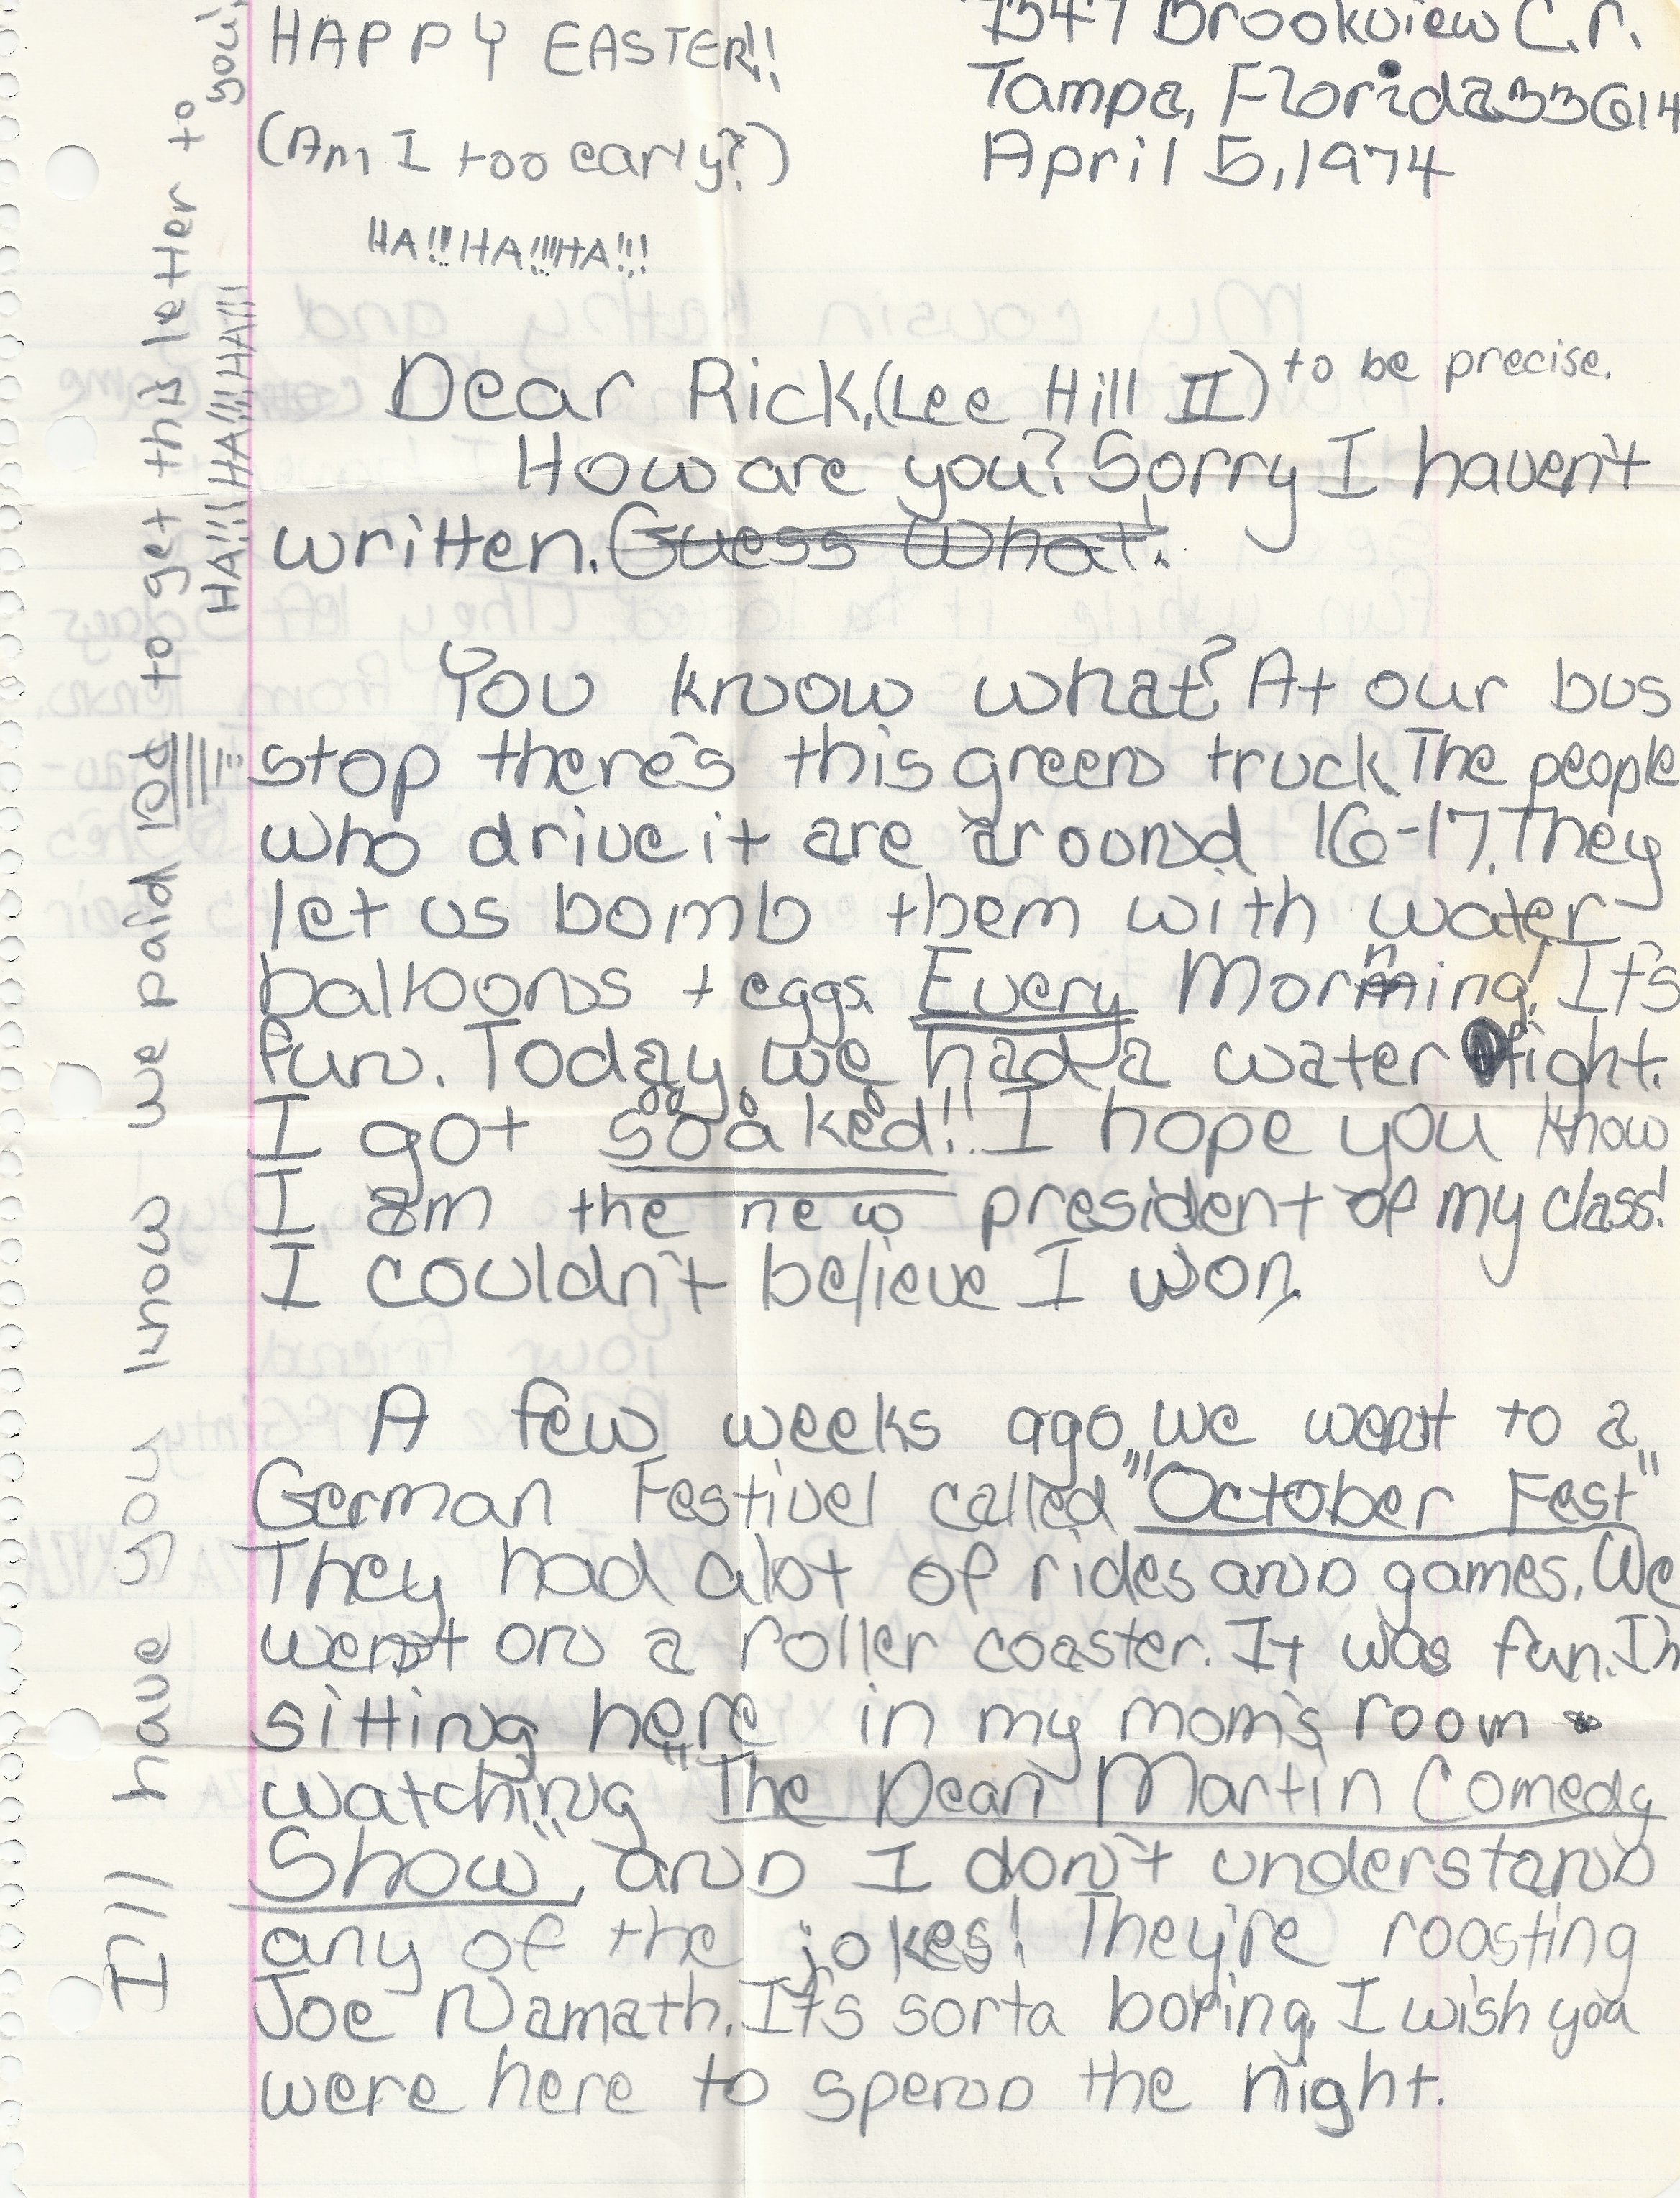 HAPPY EASTER!!
(Am I too early?)
HA!!! HA!!! HA!!!
7347 Brookview C.r.
Tampa, Florida 33614
April 5, 1974
Dear Rick, (Lee Hill II) to be precise.
How are you? Sorry I haven't
written. Guess What!
You know what? At our bus
stop there's this green truck. The people
who drive it are around 16-17. They
let us bomb them with water
balloons + eggs. Every Morning! It's
fun. Today, we had a water fight.
I got soaked!! I hope you know
I am the new president of my class!
I couldn't believe I won.
A few weeks ago, we went to a
German Festivel called "October Fest"
They had alot of rides and games. We
went on a roller coaster. It was fun. I'm
sitting here in my mom's room
watching "The Dean Martin Comedy
Show", and I don't understand
any of the jokes! They're roasting
Joe Namath. It's sorta boring. I wish you
were here to spend the night.
I'll have you know we paid 10¢ to get this letter to you!
HA!!! HA!!! HA!!!